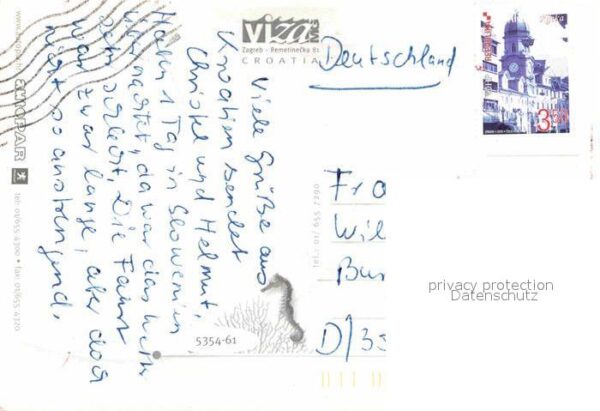 Viele Grüße aus
Kroatien sendet
Christel und Helmut.
Haben 1 Tag in Slowenien
übernachtet, da war das Wetter
sehr schlecht. Die Fahrt
war zwar lange, aber doch
nicht so anstrengend.
VIZA MG
Zagreb - Remetinečka 81
CROATIA
Deutschland
Rijeka
3,50
Fra
Wil
Bu
D/35
tel.: 01/ 655 7290
5354-61
EUROPAR
tel: 01/655 4300 • fax: 01/655 4720
privacy protection
Datenschutz